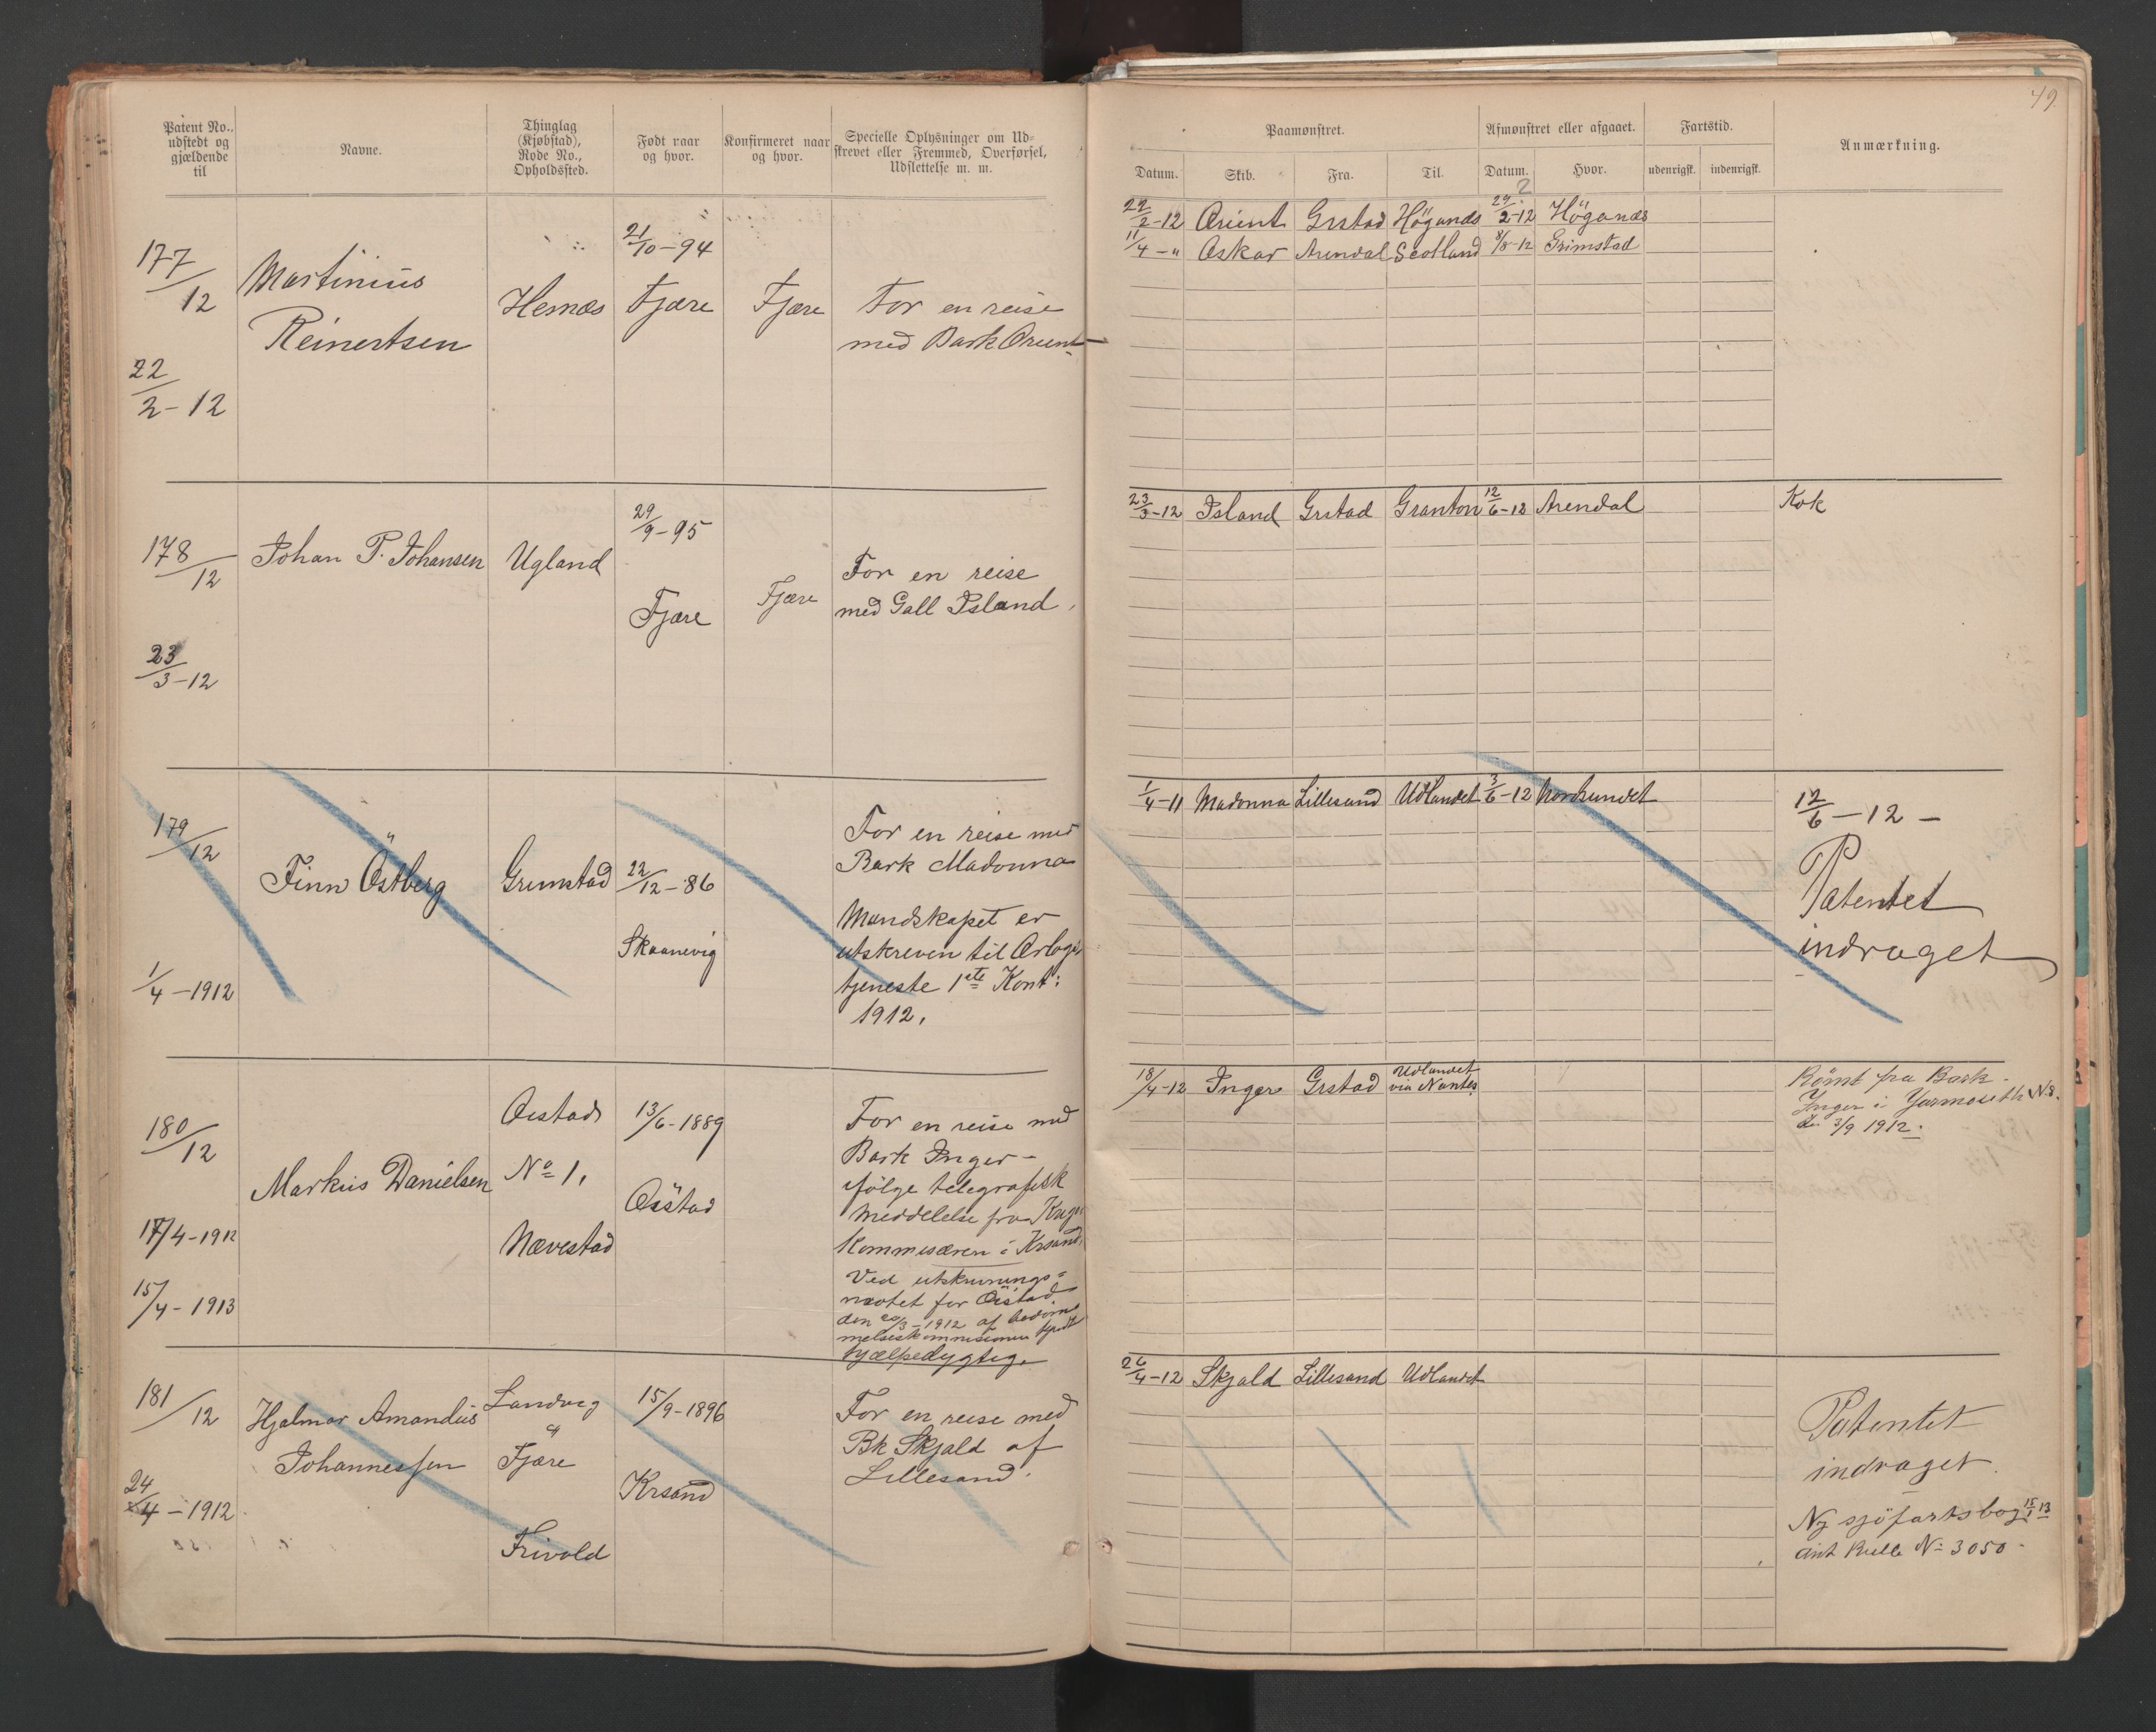 49
Patent No., udstedt og gjældende til
Navne.
Thinglag (Kjøbstad), Rode No., Opholdssted.
Født naar og hvor.
Konfirmeret naar og hvor.
Specielle Oplysninger om Udskrevet eller Fremmed, Overførsel, Udslettelse m. m.
Paamønstret.
Afmønstret eller afgaaet.
Fartstid.
Anmærkning.
Datum. Skib. Fra. Til. Datum. Hvor. udenrigsk. indenrigsk.
177/12
22/2-12
Martinius
Reinertsen
Hemnæs
21/10-94
Fjære
Fjære
For en reise
med Bark Orient
22/2-12 Orient Grstad Höganäs 29/2-12 Höganäs
11/4-" Oskar Arendal Scotland 8/8-12 Grimstad
178/12
23/3-12
Johan P. Johansen
Ugland
29/9-95
Fjære
Fjære
For en reise
med Gall Island
23/3-12 Island Grstad Granton 12/6-12 Arendal
Kok
179/12
1/4-1912
Finn Östberg
Grimstad
22/12-86
Skaanevig
For en reise med
Bark Madonna
Mandskapet er
utskreven til Orlogs
tjeneste 1ste Kont:
1912.
1/4-11 Madonna Lillesand Udlandet 3/6-12 Nordsundet
12/6-12-
Patentet
indraget
180/12
17/4-1912
15/4-1913
Markus Danielsen
Oiestad
No 1.
Nævestad
13/6-1889
Oiestad
For en reise med
Bark Inger -
ifølge telegrafisk
meddelelse fra Krigs
Kommisæren i Krsand.
Ved utskrivnings=
møtet for Öiestad
den 20/3-1912 af bedöm
melseskommisionen kjendt
hjælpedygtig.
18/4-12 Inger Grstad Udlandet
via Nantes.
Römt fra Bark
Inger i Yarmouth N.S.
den 3/9 1912.
181/12
24/4-1912
Hjalmar Amandus
Johannessen
Landvig
Fjære
Frivold
15/9-1896
Krsand
For en reise med
Bk Skjald af
Lillesand.
26/4-12 Skjald Lillesand Udlandet
Patentet
indraget.
Ny sjöfartsbog 15/1 13
Rulle No 3050-